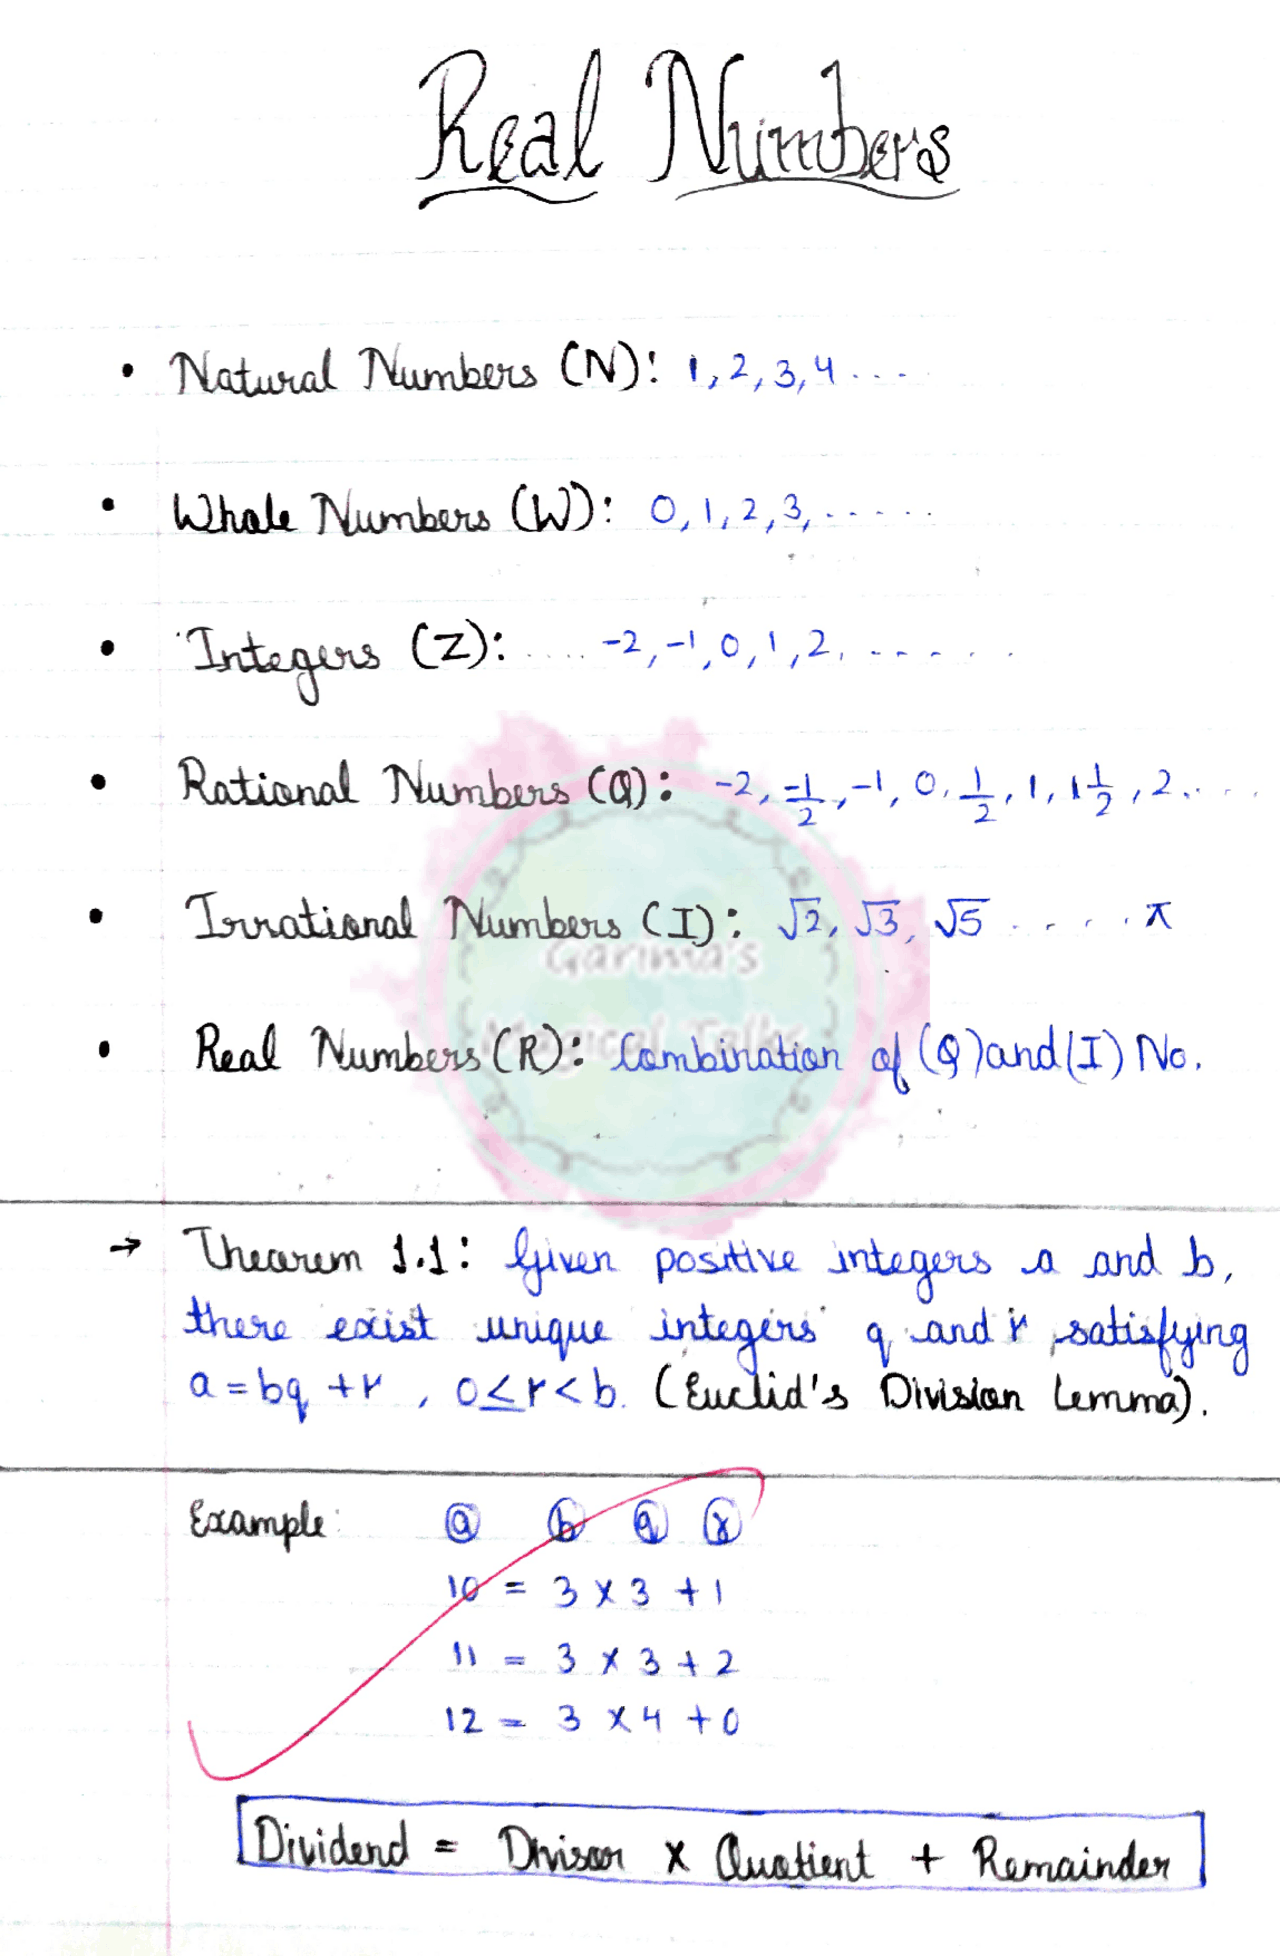 Real Numbers
• Natural Numbers (N): 1, 2, 3, 4 ....
• Whole Numbers (W): 0, 1, 2, 3, ......
• Integers (Z): .... -2, -1, 0, 1, 2, ......
• Rational Numbers (Q): -2, -1/2, -1, 0, 1/2, 1, 1 1/2, 2.....
• Irrational Numbers (I): √2, √3, √5 ..... π
Garima's
• Real Numbers (R): Combination of (Q) and (I) No.
Magical Talks
→ Theorem 1.1: Given positive integers a and b,
there exist unique integers q and r satisfying
a = bq + r , 0 ≤ r < b. (Euclid's Division Lemma).
Example: a b q r
10 = 3 × 3 + 1
11 = 3 × 3 + 2
12 = 3 × 4 + 0
Dividend = Divisor × Quotient + Remainder